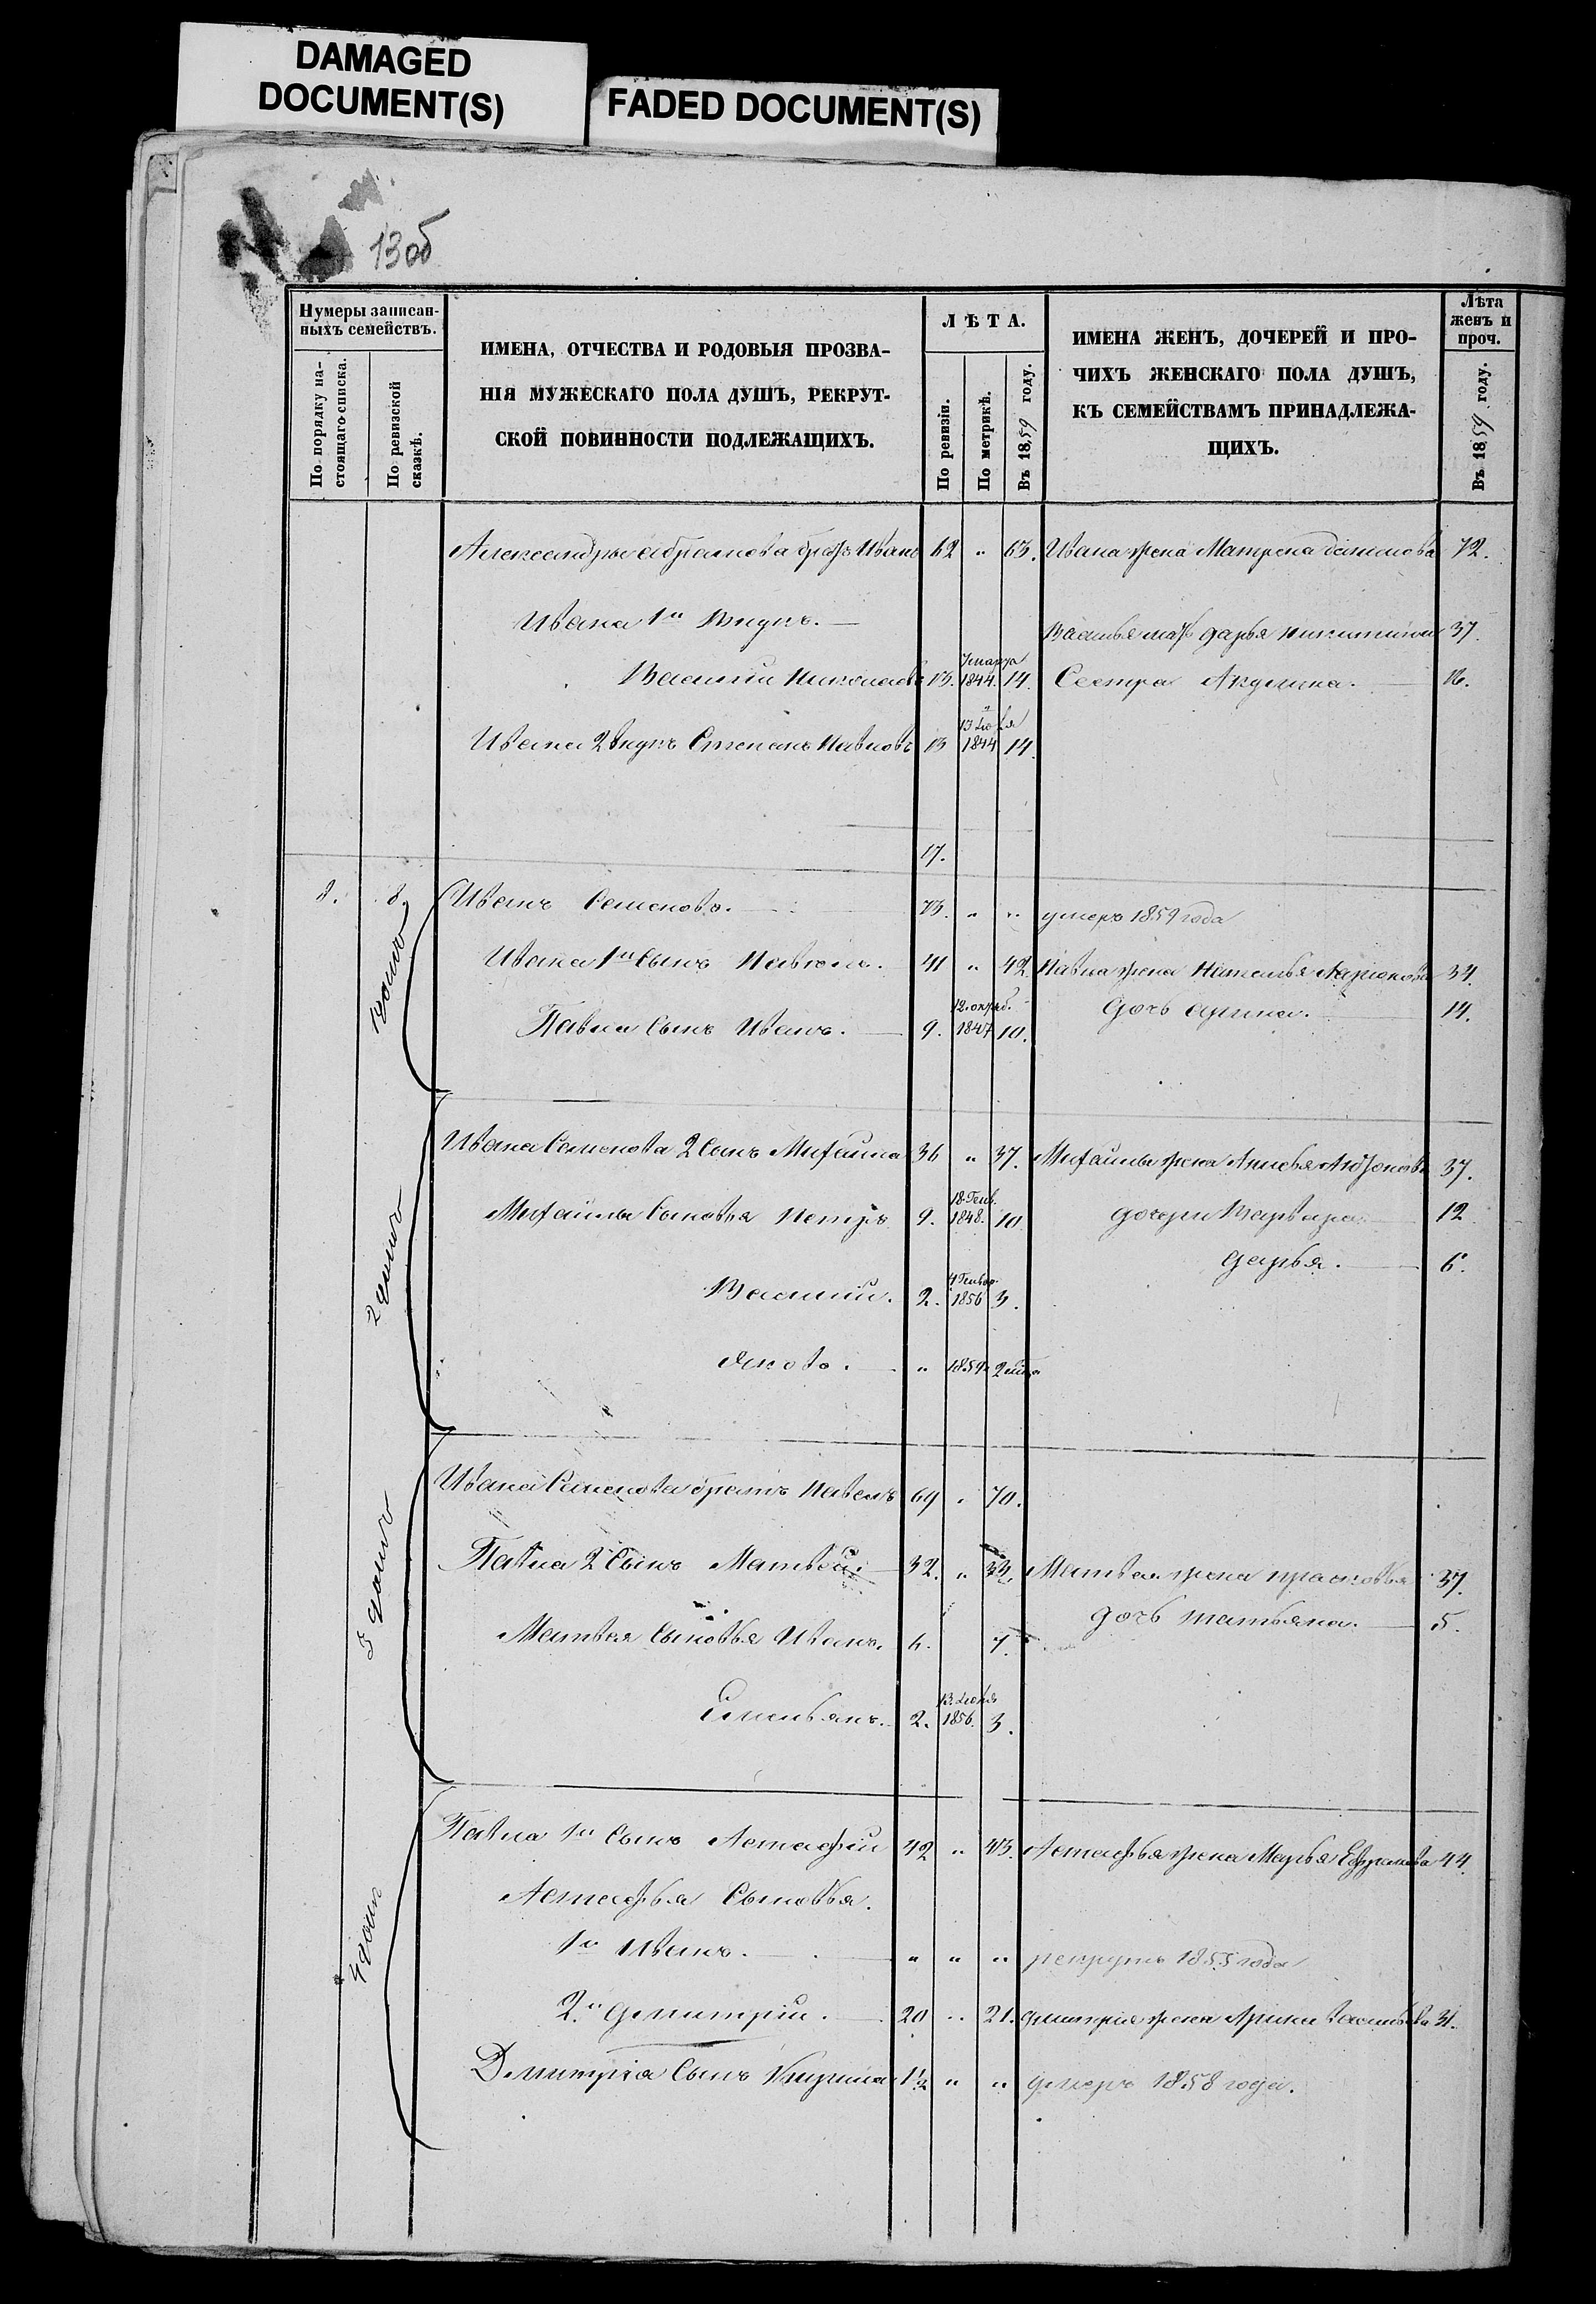 DAMAGED
DOCUMENT(S)
FADED DOCUMENT(S)
13об
Нумеры записан-
ныхъ семействъ.
По порядку на-
стоящаго списка.
По ревизской
сказкѣ.
ИМЕНА, ОТЧЕСТВА И РОДОВЫЯ ПРОЗВА-
НІЯ МУЖЕСКАГО ПОЛА ДУШЪ, РЕКРУТ-
СКОЙ ПОВИННОСТИ ПОДЛЕЖАЩИХЪ.
ЛѢТА.
По ревизіи.
По метрикѣ.
Въ 1859 году.
ИМЕНА ЖЕНЪ, ДОЧЕРЕЙ И ПРО-
ЧИХЪ ЖЕНСКАГО ПОЛА ДУШЪ,
КЪ СЕМЕЙСТВАМЪ ПРИНАДЛЕЖА-
ЩИХЪ.
Лѣта
женъ и
проч.
Въ 1859 году.
Александра Абрамова братъ Иванъ 62 " 63. Ивана жена Матрена 72.
Ивана 1й внукъ.
Василья мать Дарья 37.
Василій Николаевъ 13. 7 марта 1844. 14. Сестра Акулина. 16.
Ивана 2 внукъ Степанъ Павловъ 13 13 1844 14.
17.
8. 8. Иванъ Семеновъ. 73. " " умеръ 1859 года
1 домъ
Ивана 1й сынъ Павелъ. 41 " 42. Павла жена Наталья Ларионова 34.
Павла сынъ Иванъ. 9. 12 октяб. 1847 10. дочь Арина. 14.
2 домъ
Ивана Семенова 2 сынъ Михаила 36 " 37. Михаилы жена 37.
Михаилы сыновья Петръ 9. 18 Генв. 1848. 10. дочери Варвара 12
Дарья. 6.
Василій. 2. 4 Генвар. 1856 3.
Яковъ. " 1859
Ивана Семенова братъ Павелъ 69 " 70.
домъ
Павла 2 сынъ Матвей 32. " 33. Матвея жена Прасковья 37.
дочь Татьяна. 5.
Матвея сыновья Иванъ. 6. 7.
Емельянъ. 2. 13 1856. 3.
4 домъ
Павла 1й сынъ Астафій 42 " 43. Астафья жена Марья 44.
Астафья сыновья.
1й Иванъ. " " " рекрутъ 1855 года
2й Дмитрій. 20 " 21. Дмитрія жена Арина Васильева
Дмитрія сынъ Кирила 1½ " " умеръ 1858 года.